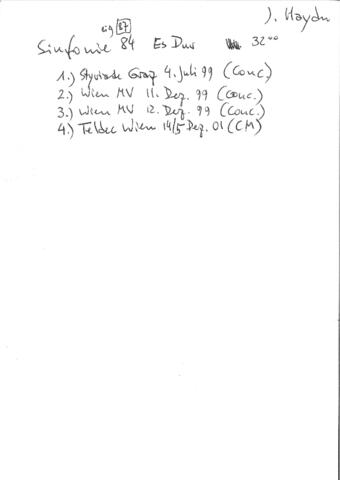 J. Haydn
eig 87
Sinfonie 84 Es Dur 32°°
1.) Styriarte Graz 4. Juli 99 (Conc.)
2.) Wien MV 11. Dez. 99 (Conc.)
3.) Wien MV 12. Dez. 99 (Conc.)
4.) Teldec Wien 14/5 Dez. 01 (CM)